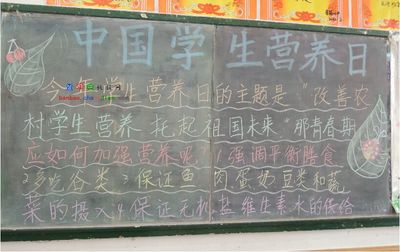 中国学生营养日
今年学生营养日的主题是"改善农
村学生营养 托起祖国未来"那青春期
应如何加强营养呢 1 强调平衡膳食
2多吃谷类 3保证鱼肉蛋奶豆类和蔬
菜的摄入4保证无机盐维生素水的供给